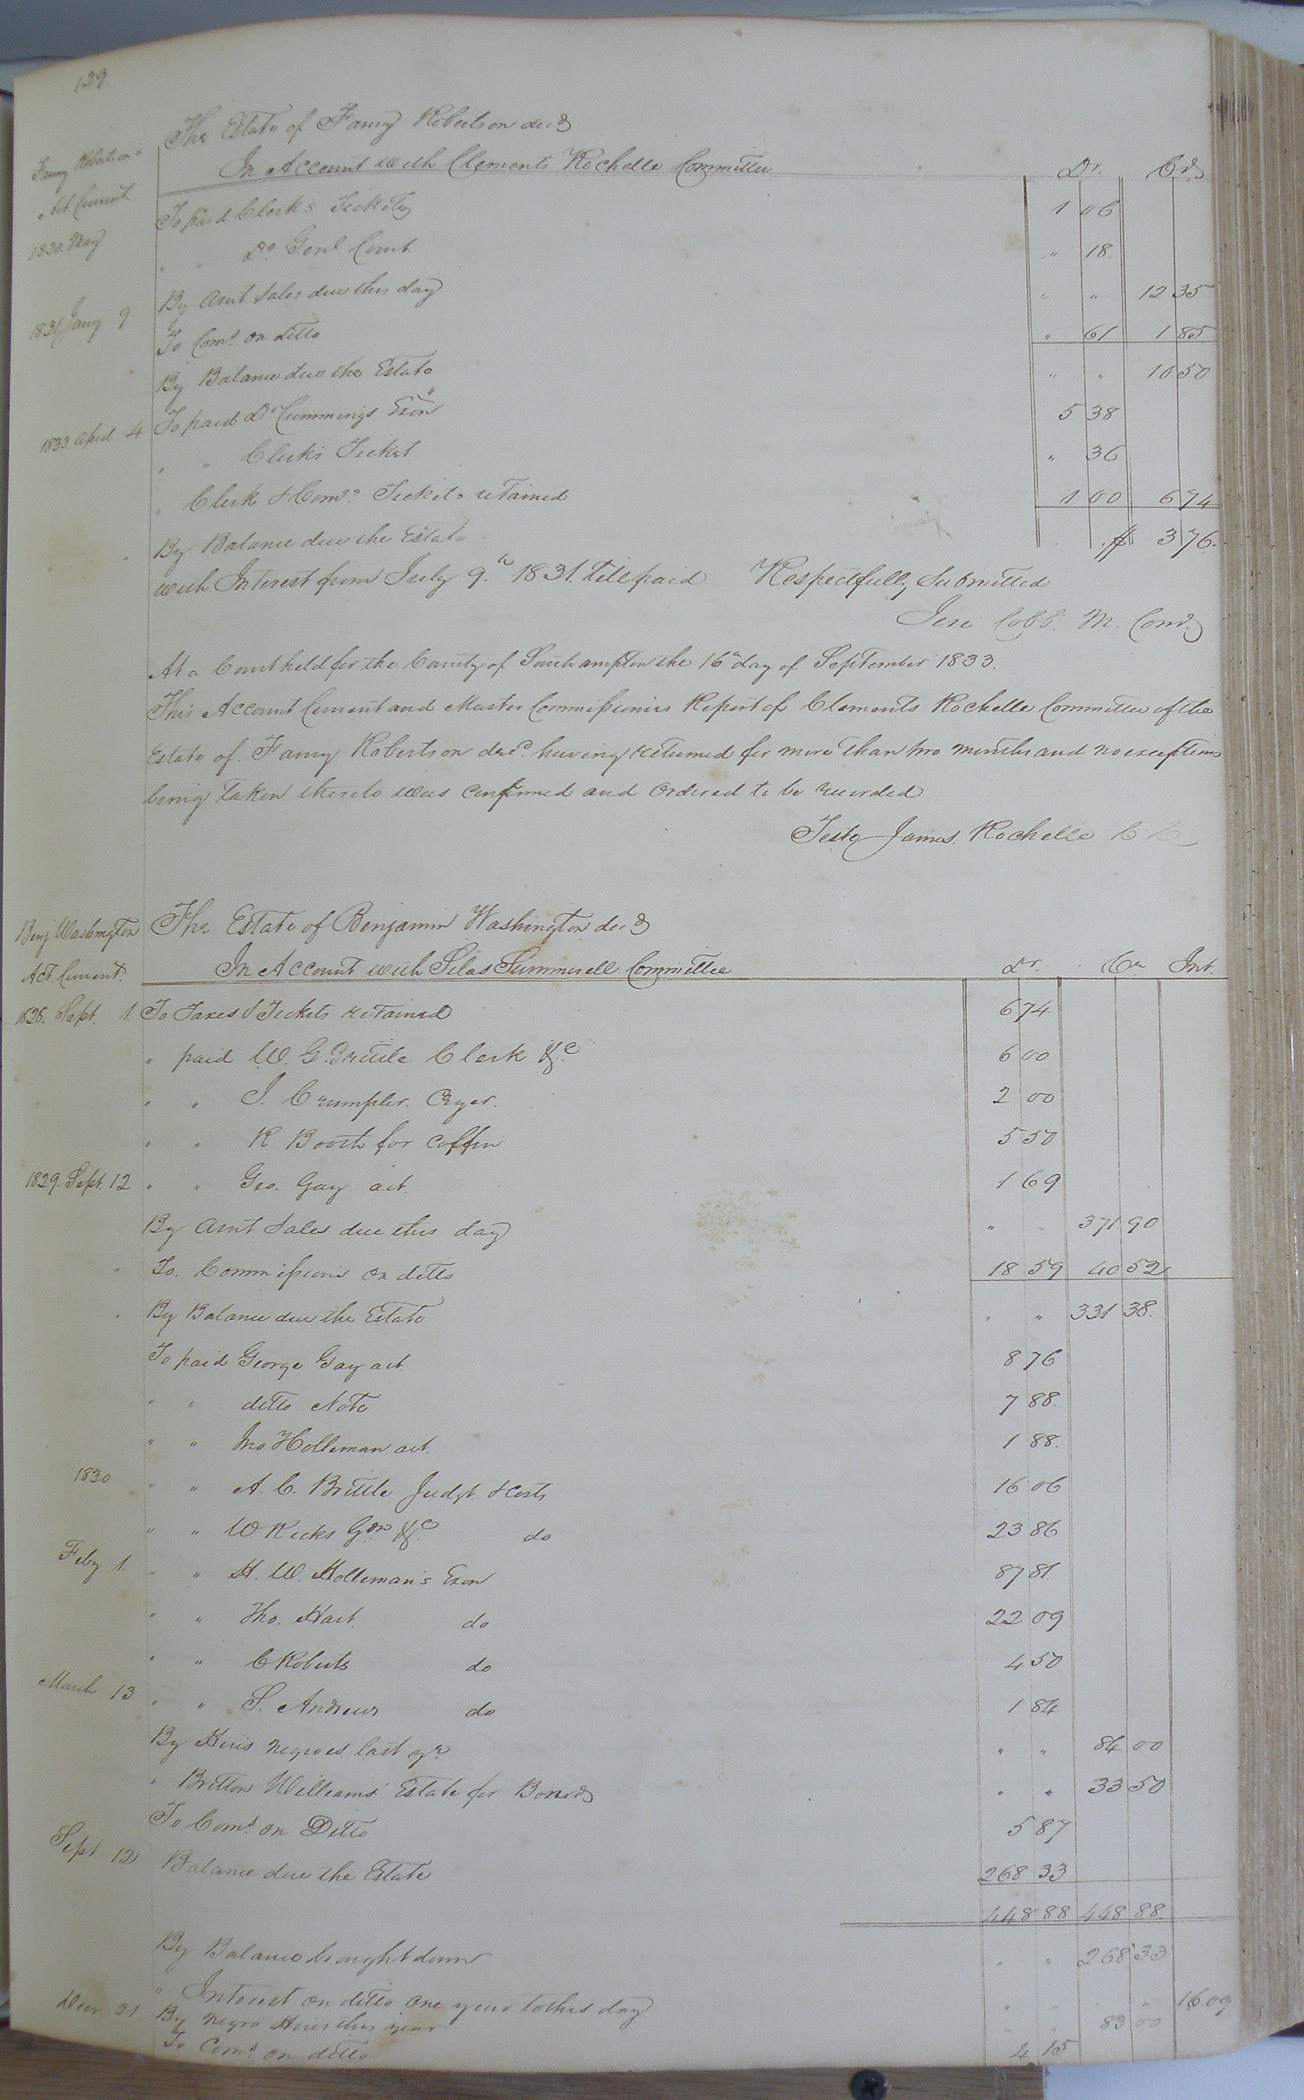 129
The Estate of Fanny Robertson decd
Fanny Robertson's In Account with Clements Rochelle Committee Dr. Cr.
Act Current.
1830. May To paid Clerk's Tickets 1 06
" " Do Genl Court " 18
1831 Jany 9 By Amt Sales due this day " " 12 35
To Coms on ditto " 61 1 85
By Balance due the Estate " " 10 50
1833 April 4 To paid Dr Cummings Exon 5 38
" " Clerk's Ticket " 36
" Clerk & Coms Tickets retained 1 00 6 74
" By Balance due the Estate $ 3 76
with Interest from July 9th 1831 till paid Respectfully Submitted
Jere Cobb. M. Comr.
At a Court held for the County of Southampton the 16th day of September 1833.
This Account Current and Master Commissioners Report of Clements Rochelle Committee of the
Estate of Fanny Robertson decd having returned for more than two months and no exceptions
being taken thereto was confirmed and ordered to be recorded
Teste James Rochelle C C
Benj Washington The Estate of Benjamin Washington decd
Act. Current. In Account with Silas Summerell Committee Dr. Cr Int.
1828. Sept. 1. To Taxes & Tickets retained 6 74
" paid W. G. Brittle Clerk &c 6 00
" " J. Crumpler. Cryer. 2 00
" " R Booth for coffin 5 50
1829. Sept. 12 " " Geo. Gay act. 1 69
By Amt Sales due this day " " 371 90
" To. Commissions on ditto 18 59 40 52
" By Balance due the Estate " " 331 38.
To paid George Gay act 8 76
" " ditto Note 7 88
" " Jno Holleman act. 1 88.
1830 " " A. C. Brittle Judgt & costs 16 06
" " W Ricks Gdn &c. do 23 86
Feby 1. " " H. W. Holleman's Exon 87 81.
" " Tho. Hart. do 22 09
" " C Roberts do 4 50
March 13 " " S. Andrews do 1 84
By Hires negroes last yr " " 84 00
" Britton Williams' Estate for Board " " 33 50
To Coms. on Ditto 5 87
Sept 12 Balance due the Estate 268 33
448 88 448 88
By Balance brought down " " 268 33
" Interest on ditto one year to this day " " " " 16.09
Decr 21 By Negro Hires this year " " 83 00
To Coms on ditto 4 15